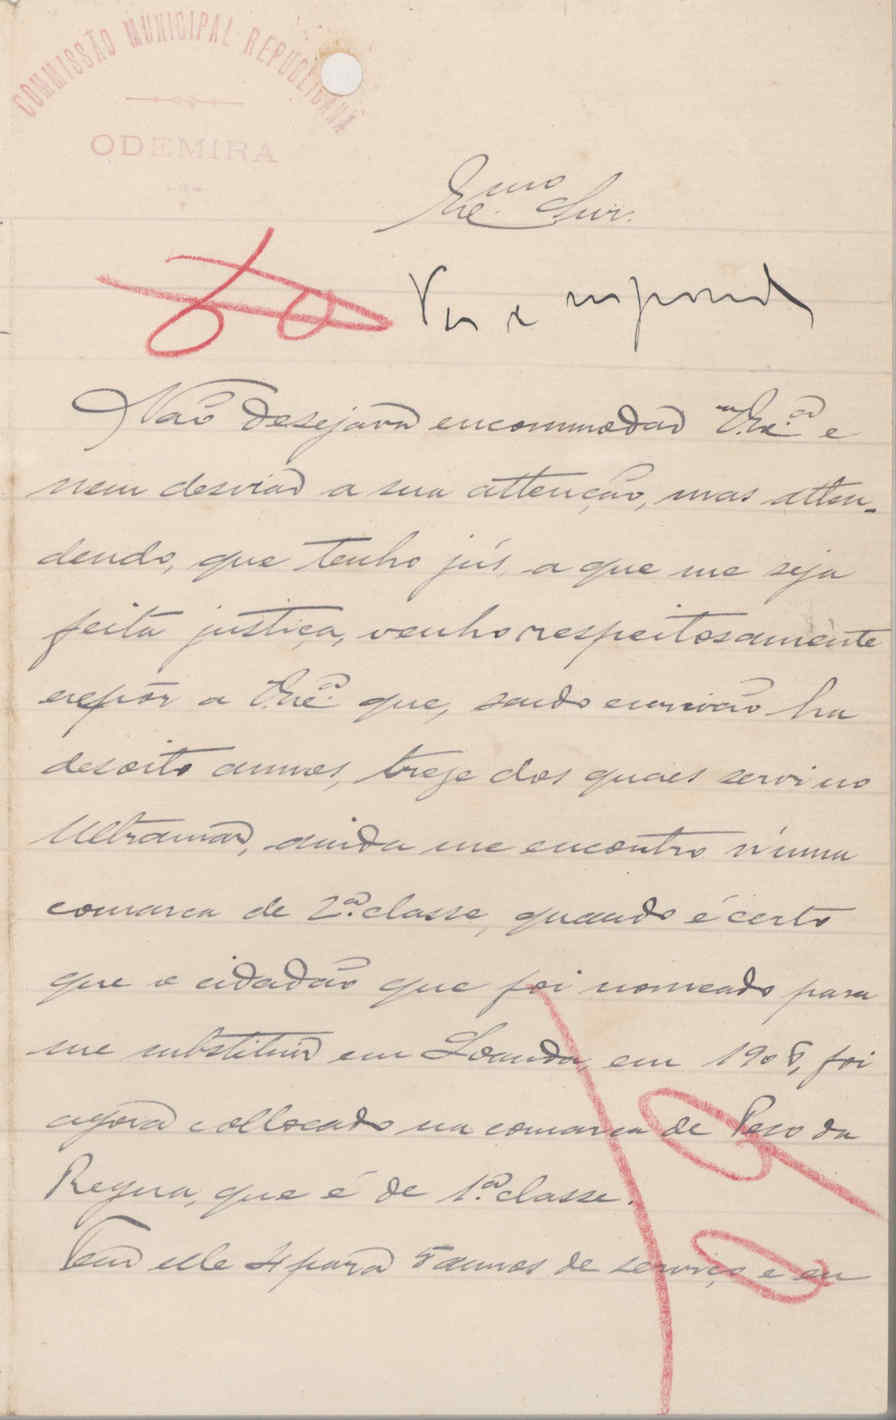 COMMISSÃO MUNICIPAL REPUBLICANA
ODEMIRA
Exc.mo Snr.
Não desejava encommodar V. Exc.ª e
nem desviar a sua attenção, mas atten-
dendo, que tenho jús, a que me seja
feita justiça, venho respeitosamente
expôr a V. Exc.ª que, sendo escrivão ha
desoito annos, treze dos quaes servi no
Ultramar, ainda me encontro n'uma
comarca de 2.ª classe, quando é certo
que o cidadão que foi nomeado para
me substituir em Loanda, em 1908, foi
agora collocado na comarca de Peso da
Regua, que é de 1.ª classe.
Tem elle 4 para 5 annos de serviço e eu